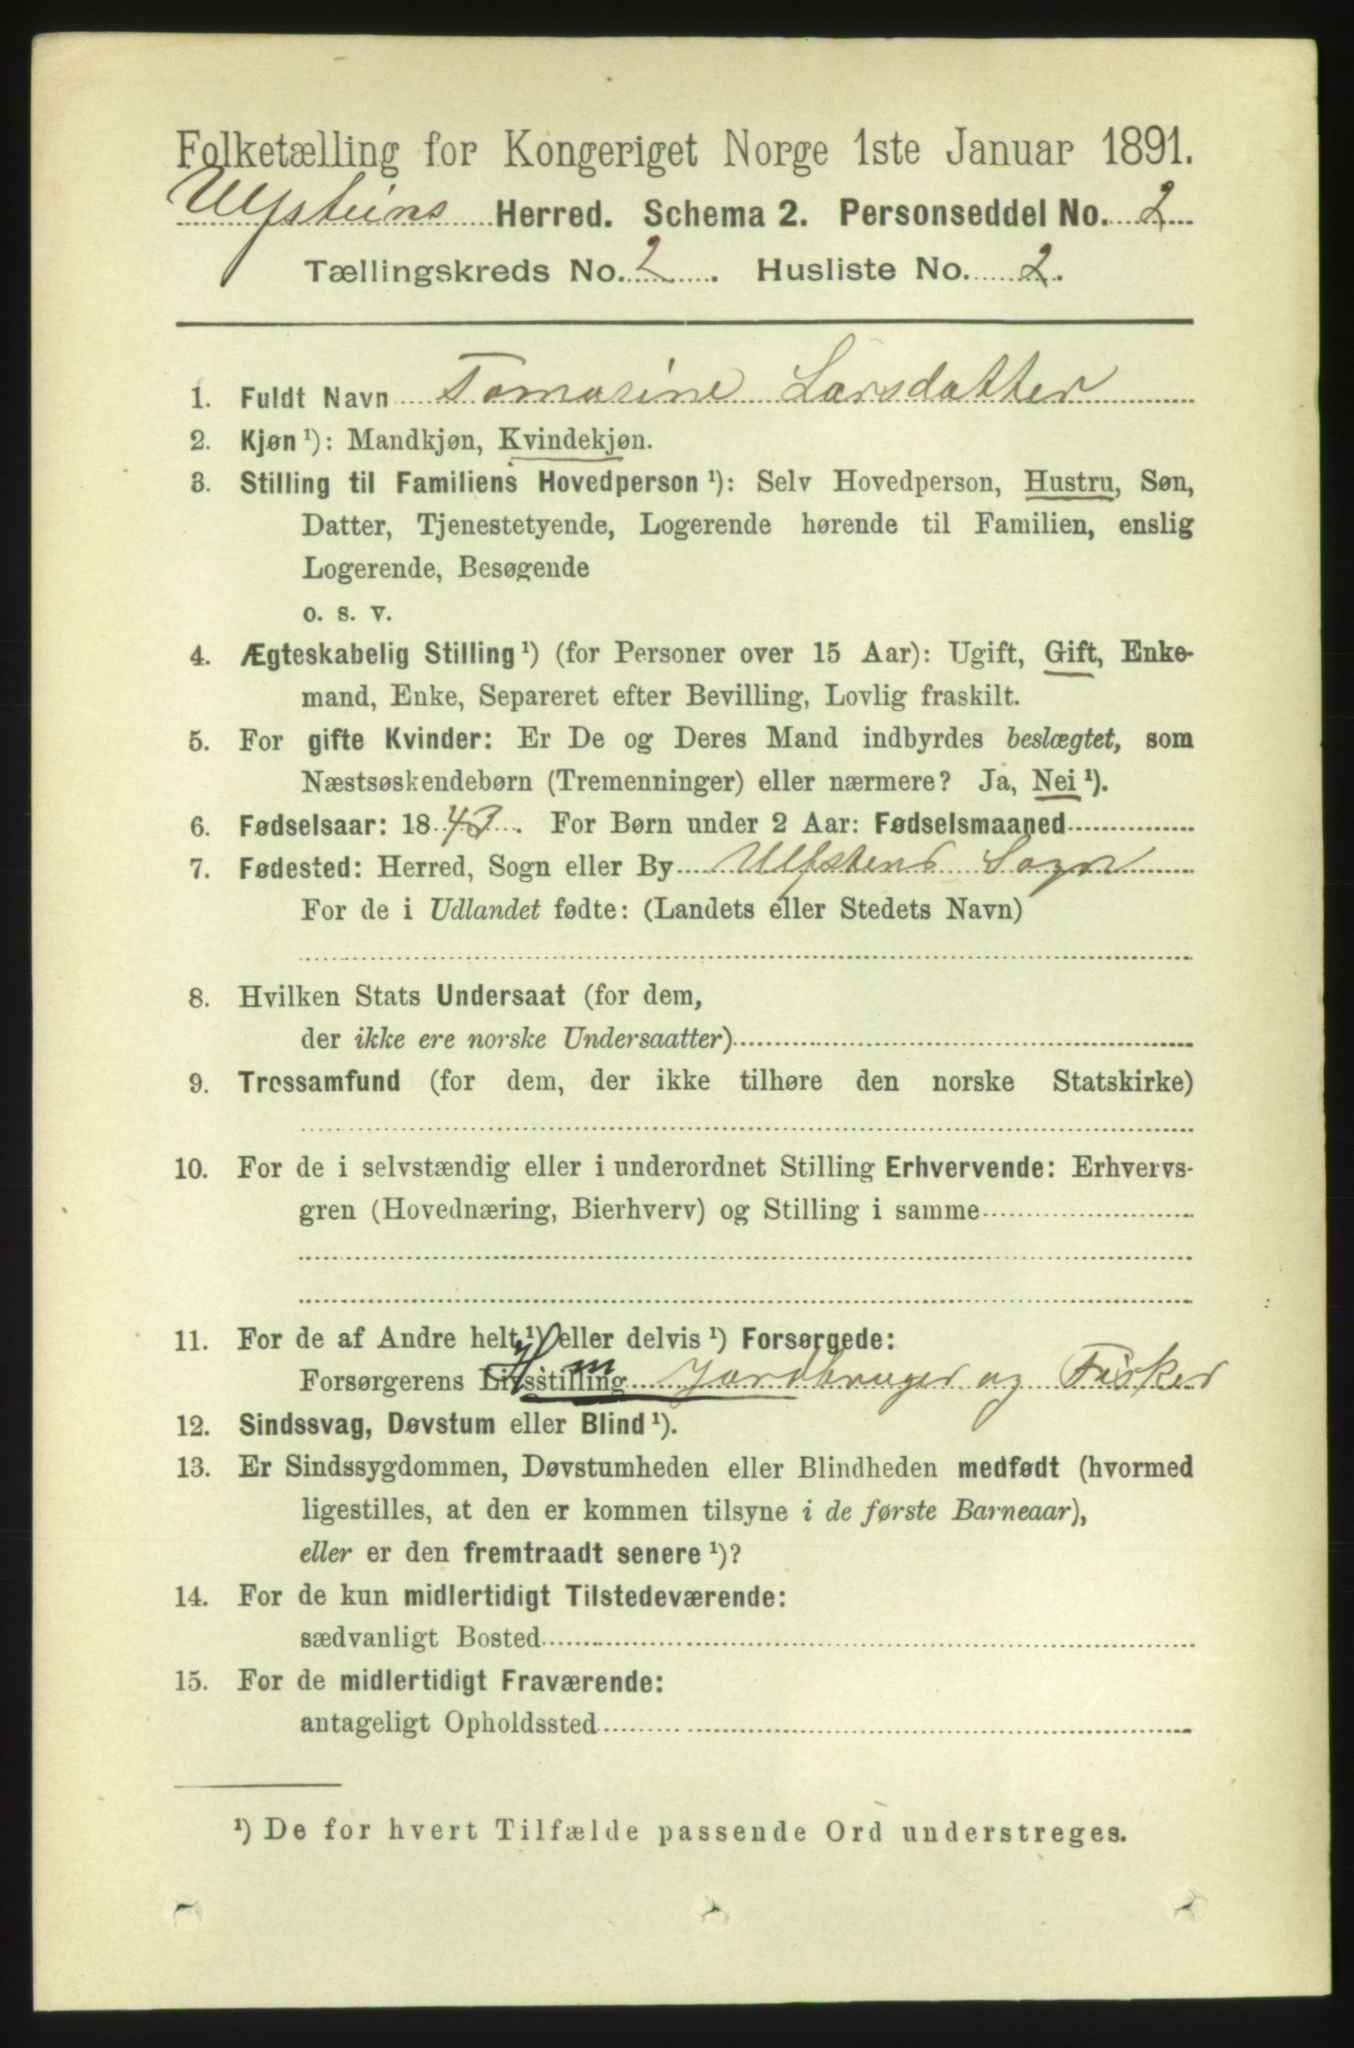 Folketælling for Kongeriget Norge 1ste Januar 1891.
Ulfsteins Herred. Schema 2. Personseddel No. 2
Tællingskreds No. 2. Husliste No. 2.
1. Fuldt Navn Tomasine Larsdatter
2. Kjøn ¹): Mandkjøn, Kvindekjøn.
3. Stilling til Familiens Hovedperson ¹): Selv Hovedperson, Hustru, Søn,
Datter, Tjenestetyende, Logerende hørende til Familien, enslig
Logerende, Besøgende
o. s. v.
4. Ægteskabelig Stilling ¹) (for Personer over 15 Aar): Ugift, Gift, Enke-
mand, Enke, Separeret efter Bevilling, Lovlig fraskilt.
5. For gifte Kvinder: Er De og Deres Mand indbyrdes beslægtet, som
Næstsøskendebørn (Tremenninger) eller nærmere? Ja, Nei ¹).
6. Fødselsaar: 1843. For Børn under 2 Aar: Fødselsmaaned
7. Fødested: Herred, Sogn eller By Ulfstens Sogn
For de i Udlandet fødte: (Landets eller Stedets Navn)
8. Hvilken Stats Undersaat (for dem,
der ikke ere norske Undersaatter)
9. Trossamfund (for dem, der ikke tilhøre den norske Statskirke)
10. For de i selvstændig eller i underordnet Stilling Erhvervende: Erhvervs-
gren (Hovednæring, Bierhverv) og Stilling i samme
11. For de af Andre helt ¹) eller delvis ¹) Forsørgede:
Forsørgerens Livsstilling Hm Jordbruger og Fisker
12. Sindssvag, Døvstum eller Blind ¹).
13. Er Sindssygdommen, Døvstumheden eller Blindheden medfødt (hvormed
ligestilles, at den er kommen tilsyne i de første Barneaar),
eller er den fremtraadt senere ¹)?
14. For de kun midlertidigt Tilstedeværende:
sædvanligt Bosted
15. For de midlertidigt Fraværende:
antageligt Opholdssted
¹) De for hvert Tilfælde passende Ord understreges.